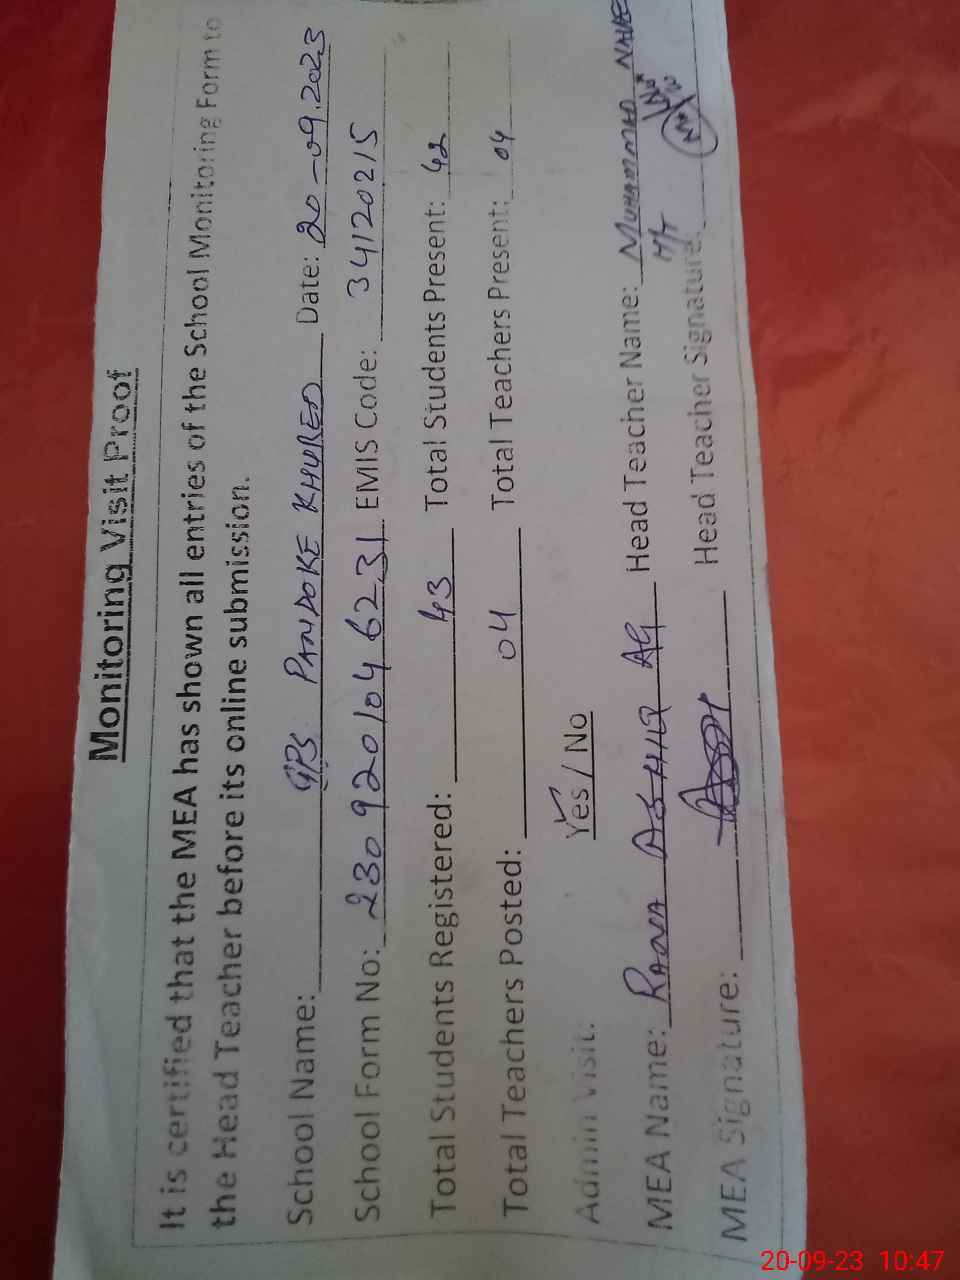 Monitoring Visit Proof
It is certified that the MEA has shown all entries of the School Monitoring Form to
the Head Teacher before its online submission.
School Name: GPS PANDOKE KHURED Date: 20-09.2023
School Form No: 2309201046231 EMIS Code: 34120215
Total Students Registered: 43 Total Students Present: 42
Total Teachers Posted: 04 Total Teachers Present: 04
Admin Visit: Yes / No
MEA Name: RANA ASHIQ Ali Head Teacher Name: MUHAMMAD
H/T
MEA Signature: Head Teacher Signature:
20-09-23 10:47